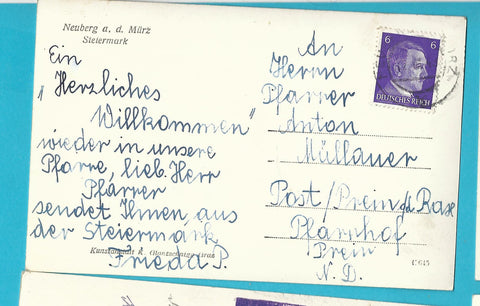 Neuberg a. d. Mürz
Steiermark
Ein
"Herzliches
Willkommen"
wieder in unsere
Pfarre, lieb. Herr
Pfarrer
sendet Ihnen aus
der Steiermark
Frieda P.
Kunstanstalt
An
Herrn
Pfarrer
Anton
Müllauer
Post/Prein a/d Rax
Pfarrhof
Prein
N.D.
C 645
6 6
DEUTSCHES REICH
RZ